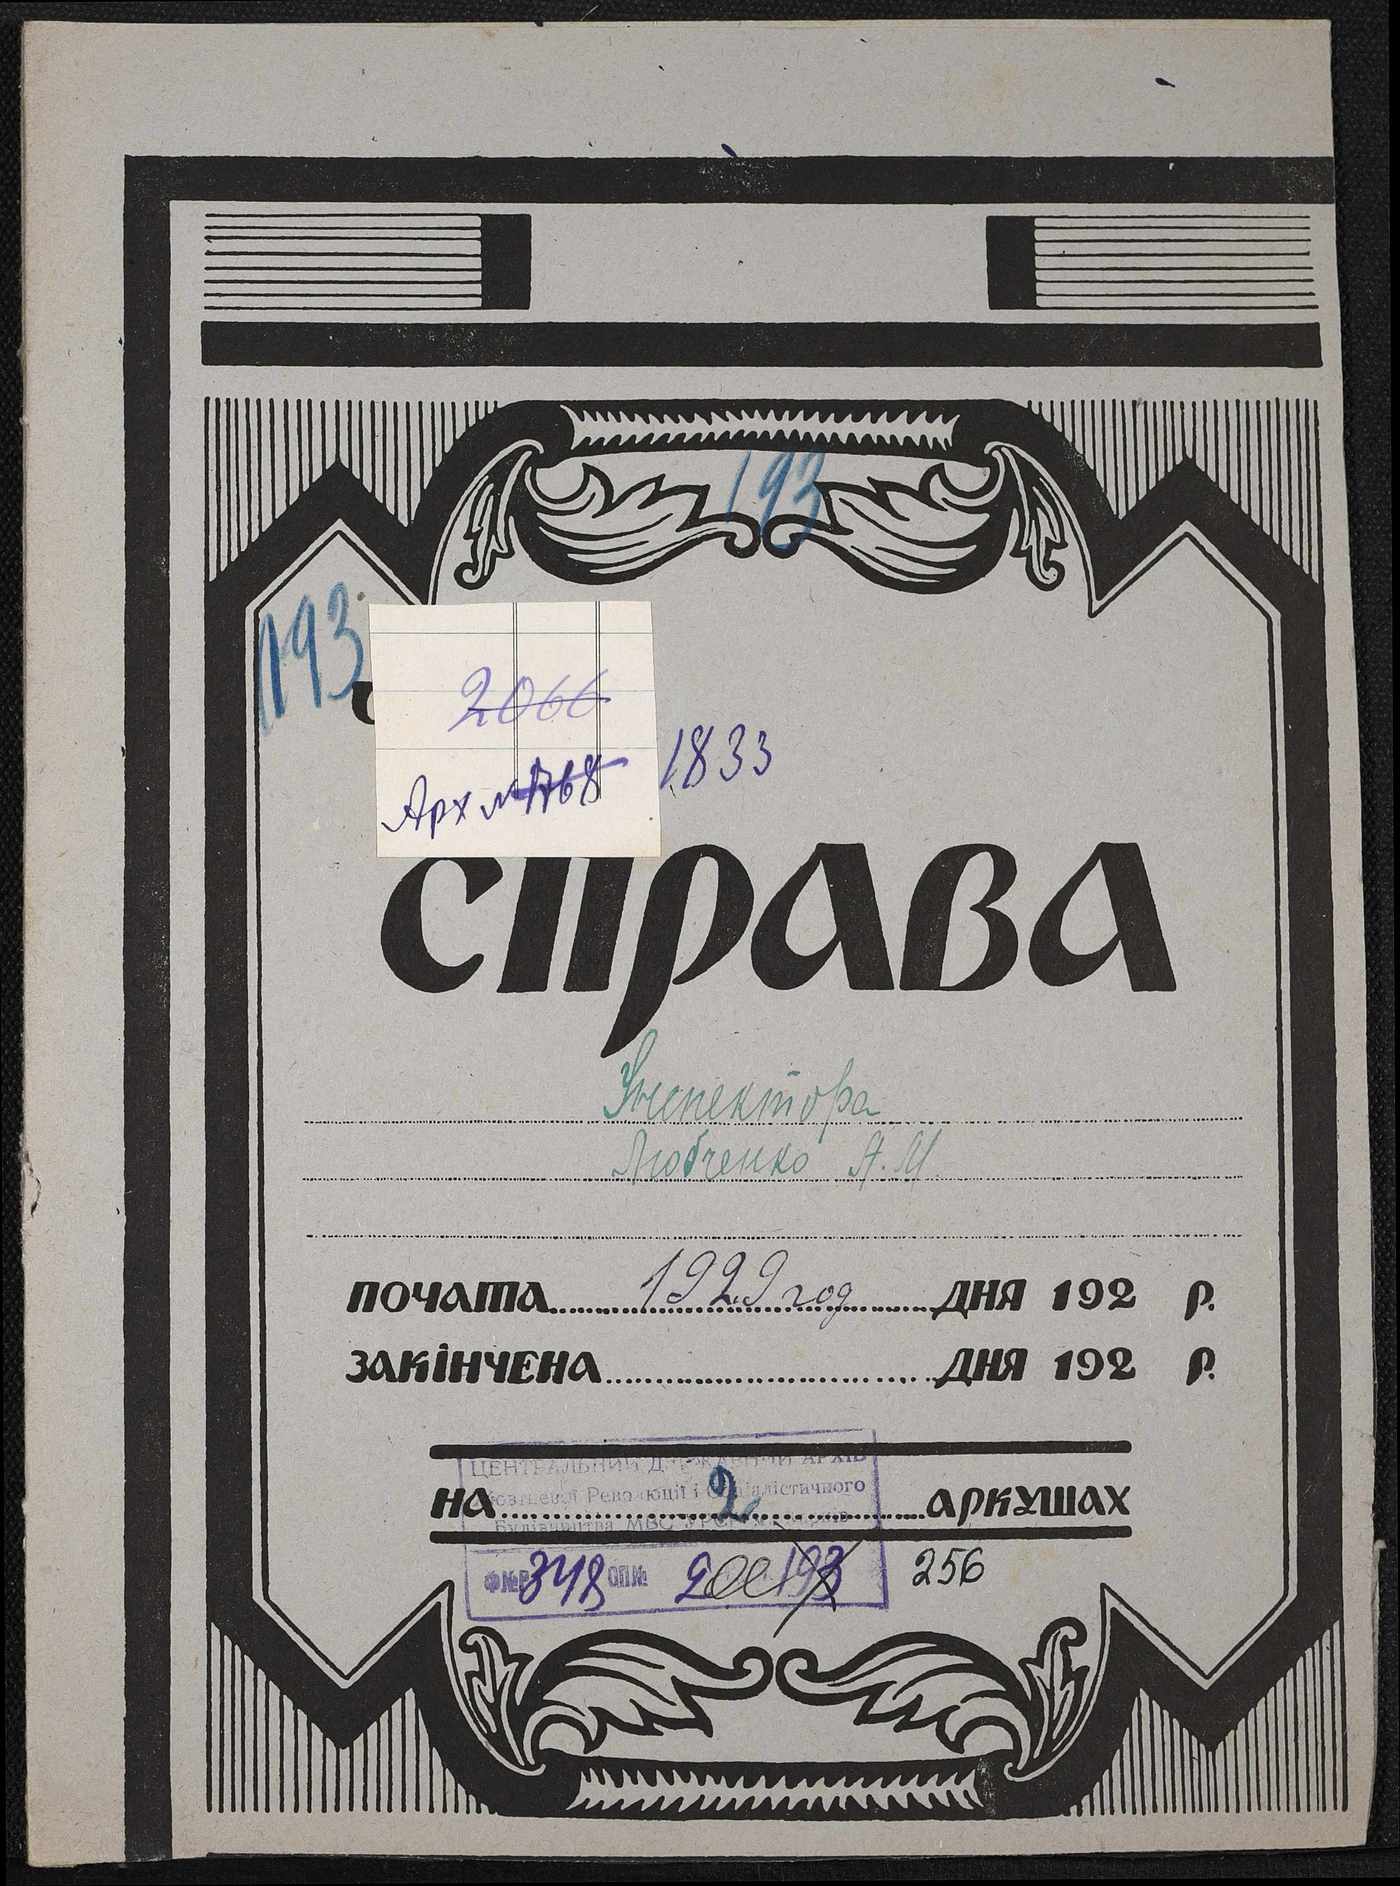 193
193
2066
Арх № 1768
1833
СПРАВА
Инспектора
Любченко А.М.
ПОЧАТА 1929 год ДНЯ 192 р.
ЗАКІНЧЕНА ДНЯ 192 р.
ЦЕНТРАЛЬНИЙ ДЕРЖАВНИЙ АРХІВ
Жовтневої Революції і Соціалістичного
НА 2 АРКУШАХ
Будівництва МВС УРСР
Ф№Р 348 ОП№ 193 256